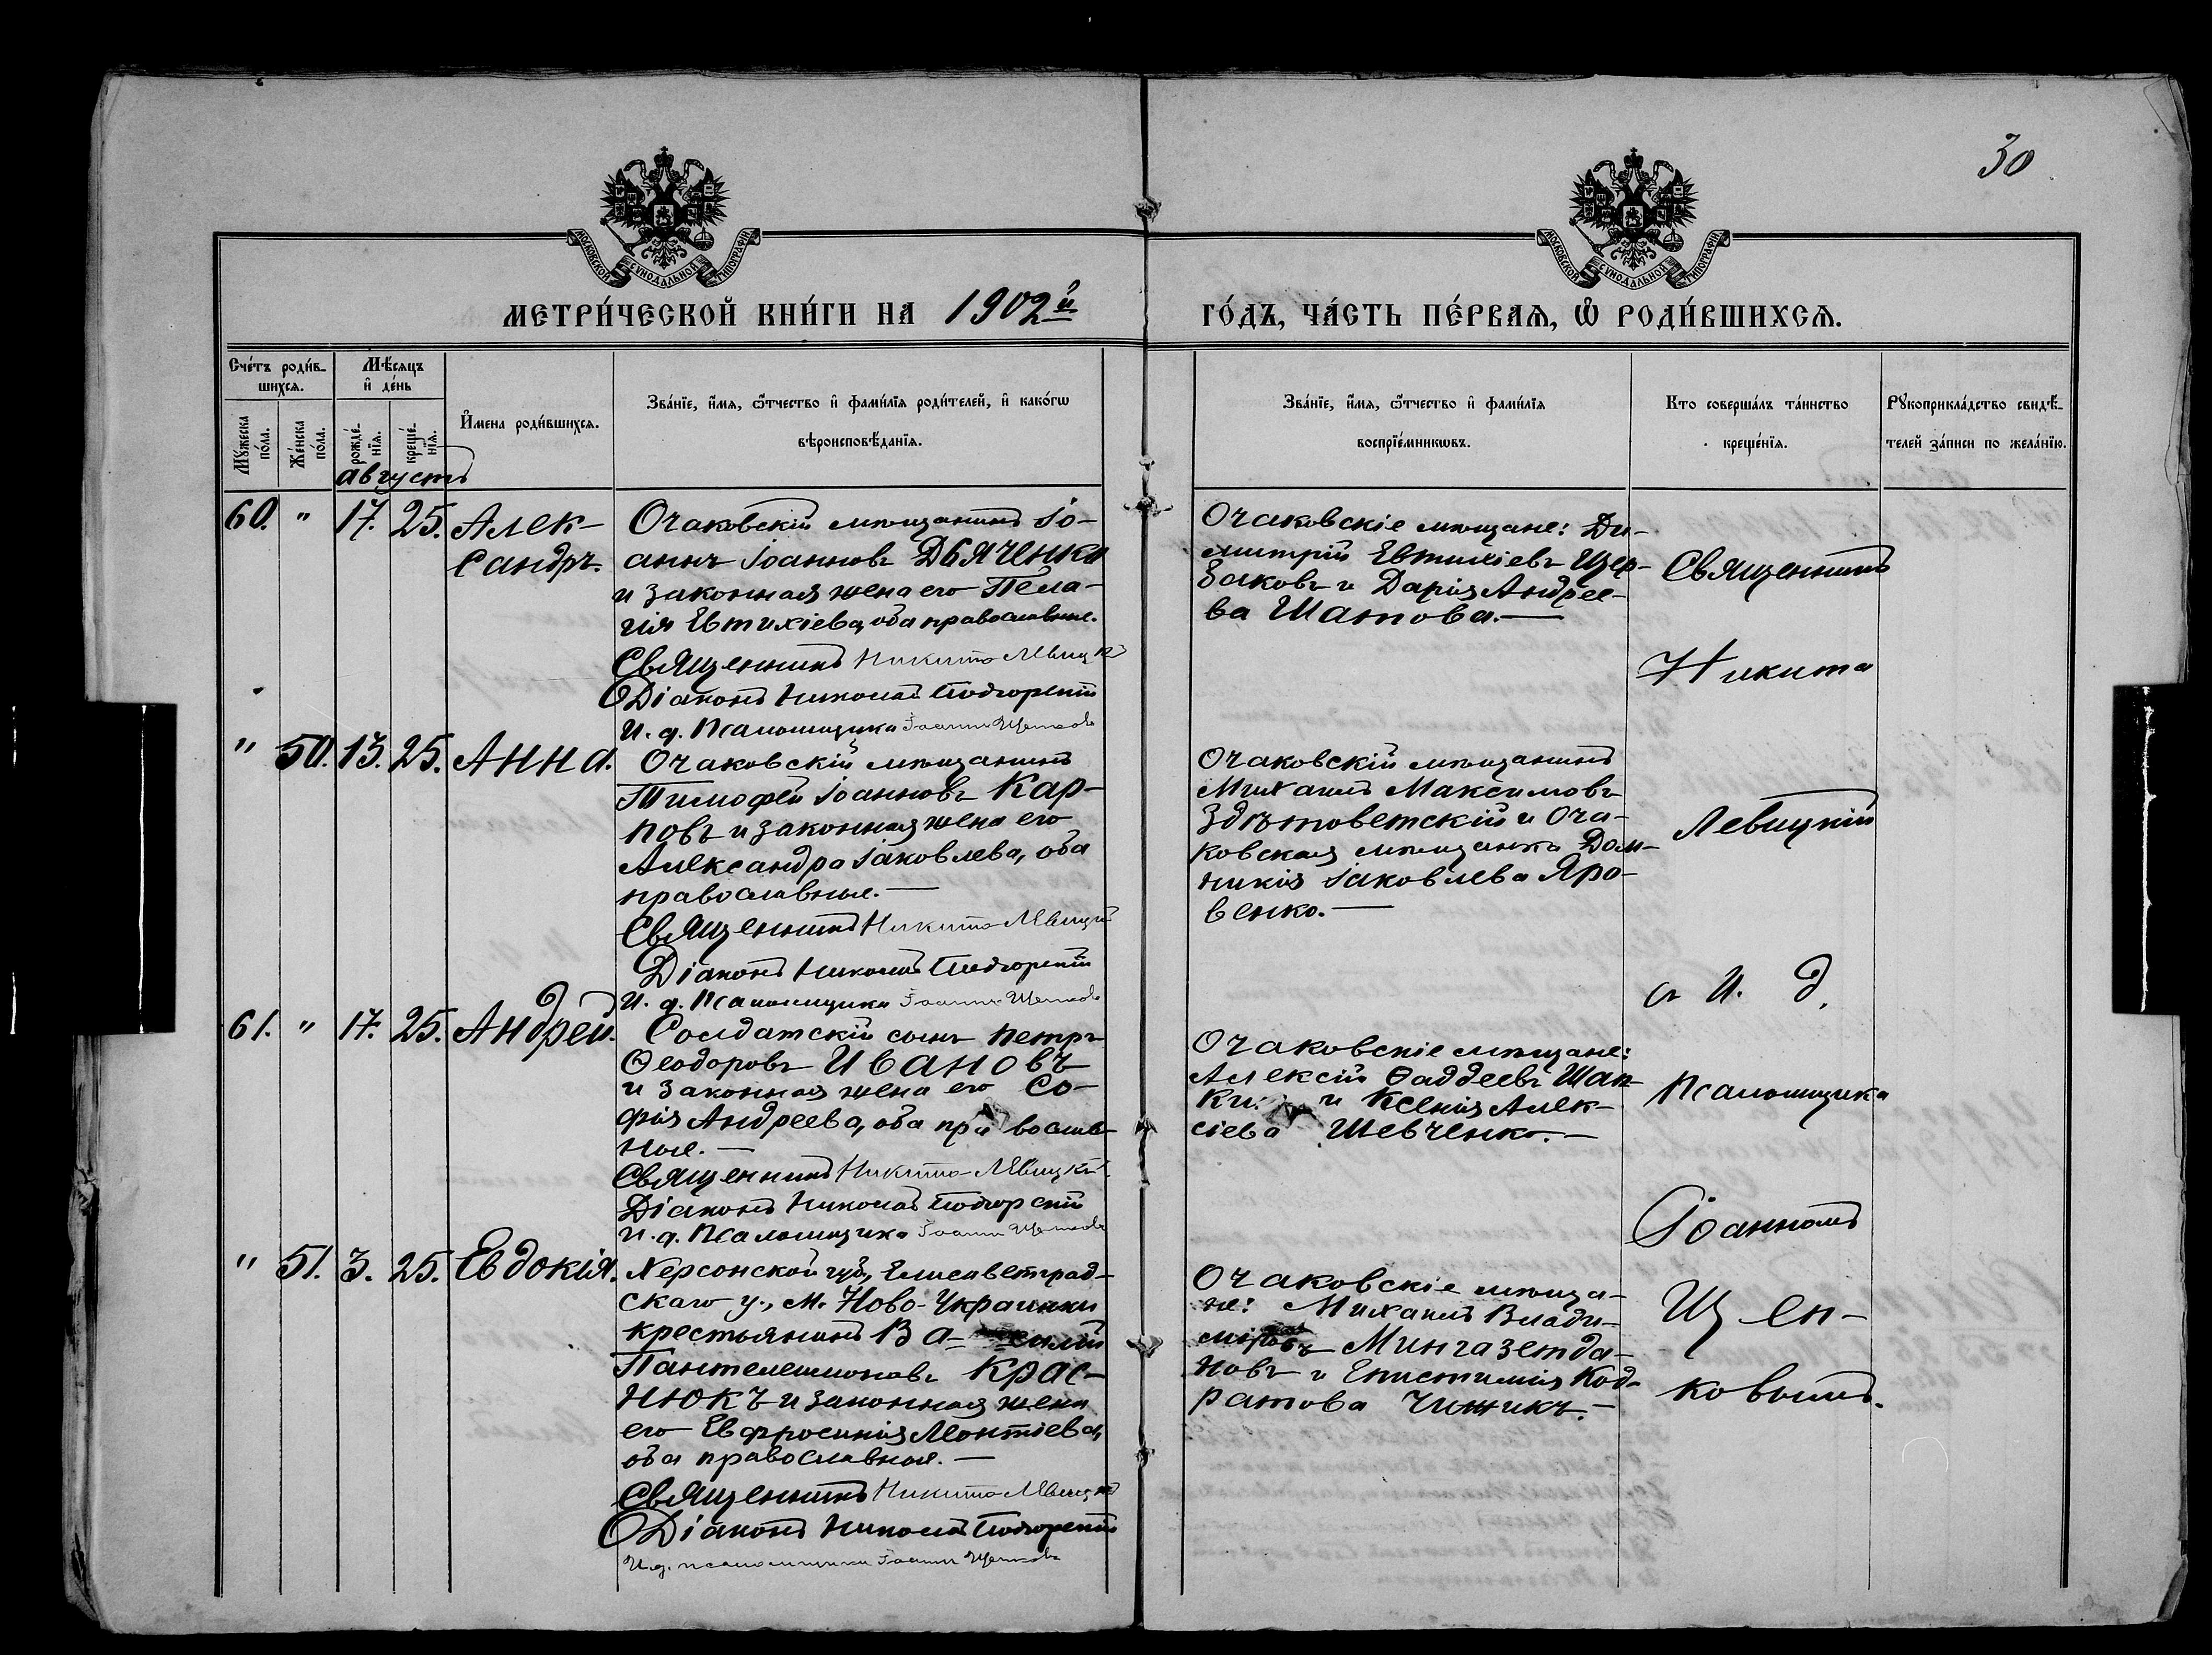 30
МОСКОВСКОЙ СѴНОДАЛЬНОЙ ТИПОГРАФІИ
МОСКОВСКОЙ СѴНОДАЛЬНОЙ ТИПОГРАФІИ
МЕТРИ́ЧЕСКОЙ КНИ́ГИ НА 1902й
ГО́ДЪ, ЧА́СТЬ ПЕ́РВАѦ, Ѡ҆ РОДИ́ВШИХСѦ.
Сче́тъ роди́в-
шихсѧ.
Мѣ́сѧцъ
и҆ де́нь
Мꙋ́жеска
по́ла.
Же́нска
по́ла.
рожде́-
нїѧ.
креще́-
нїѧ.
И҆мена роди́вшихсѧ.
Зва́нїе, и҆́мѧ, ѻ҆́тчество и҆ фами́лїѧ роди́телей, и҆ како́гѡ
вѣроисповѣ́данїѧ.
Зва́нїе, и҆́мѧ, ѻ҆́тчество и҆ фами́лїѧ
воспрїе́мникѡвъ.
Кто соверша́лъ та́инство
креще́нїѧ.
Рꙋкоприкла́дство свидѣ́-
телей за́писи по жела́нїю.
августъ
60. " 17. 25. Алек-
сандръ.
Очаковскій мѣщанинъ Іо-
аннъ Іоанновъ ДЬЯЧЕНКО
и законная жена его Пела-
гія Евтихіева, оба православные.
Священникъ Никита Левицкій
Діаконъ Николай Подгорскій
И. д. Псаломщика Іоаннъ Щенковъ
Очаковскіе мѣщане: Ди-
митрій Евтихіевъ Щер-
баковъ и Дарія Андрее-
ва Шатова.—
" 50. 13. 25. Анна.
Очаковскій мѣщанинъ
Тимофей Іоанновъ Кар-
повъ и законная жена его
Александра Іаковлева, оба
православные.—
Священникъ Никита Левицкій
Діаконъ Николай Подгорскій
И. д. Псаломщика Іоаннъ Щенковъ
Очаковскій мѣщанинъ
Михаилъ Максимовъ
и Оча-
ковская мѣщанка Дом-
никія Іаковлева Яро-
венко.—
61. " 17. 25. Андрей.
Солдатскій сынъ Петръ
Ѳеодоровъ ИВАНОВЪ
и законная жена его Со-
фія Андреева, оба православ-
ные.—
Священникъ Никита Левицкій
Діаконъ Николай Подгорскій
И. д. Псаломщика Іоаннъ Щенковъ
Очаковскіе мѣщане:
Алексій Ѳаддеевъ
и Ксенія Алек-
сіева Шевченко.—
" 51. 3. 25. Евдокія.
Херсонской губ., Елисаветград-
скаго у., м. Ново-Украинки
крестьянинъ Ва-силій
Пантелеимоновъ КРАС-
НЮКЪ и законная жена
его Евфросинія Леонтіева,
оба православные.—
Священникъ Никита Левицкій
Діаконъ Николай Подгорскій
И. д. псаломщика Іоаннъ Щенковъ
Очаковскіе мѣща-
не: Михаилъ Влади-
міровъ Мингазетди-
новъ и Епистимія Код-
ратова Чижикъ.—
Священникъ
Никита
Левицкій
съ И. д.
Псаломщика
Іоанномъ
Щен-
ковымъ.